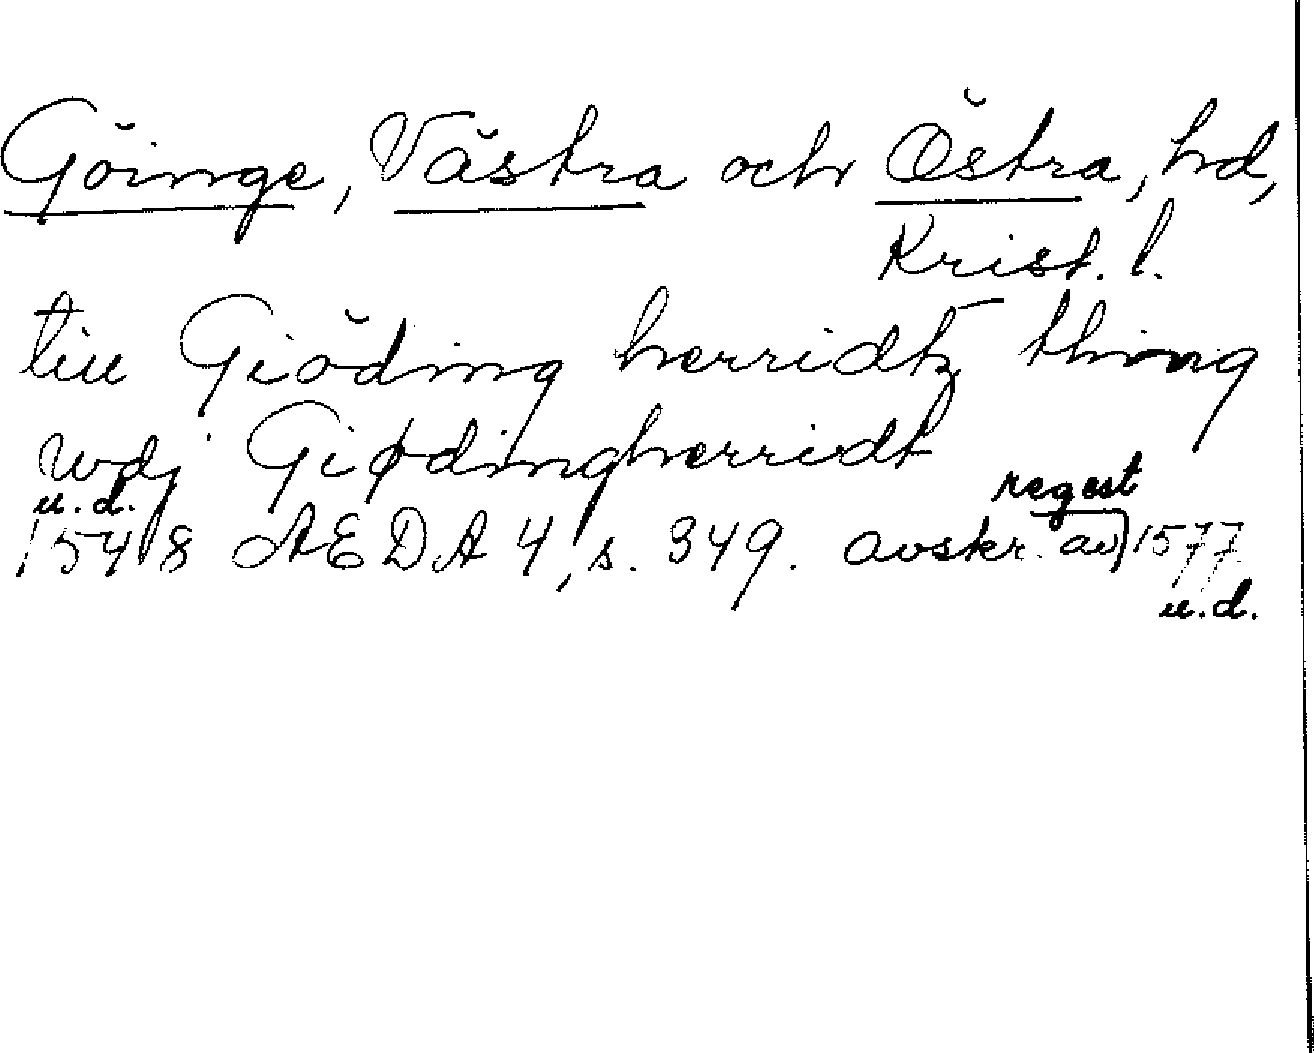 Göinge, Västra och Östra, hd,
Krist. l.
till Giöding herridtz thing
wdj Giødingherridt
u.d. regest
1548 AEDA 4, s. 349. avskr. av 1577
u.d.